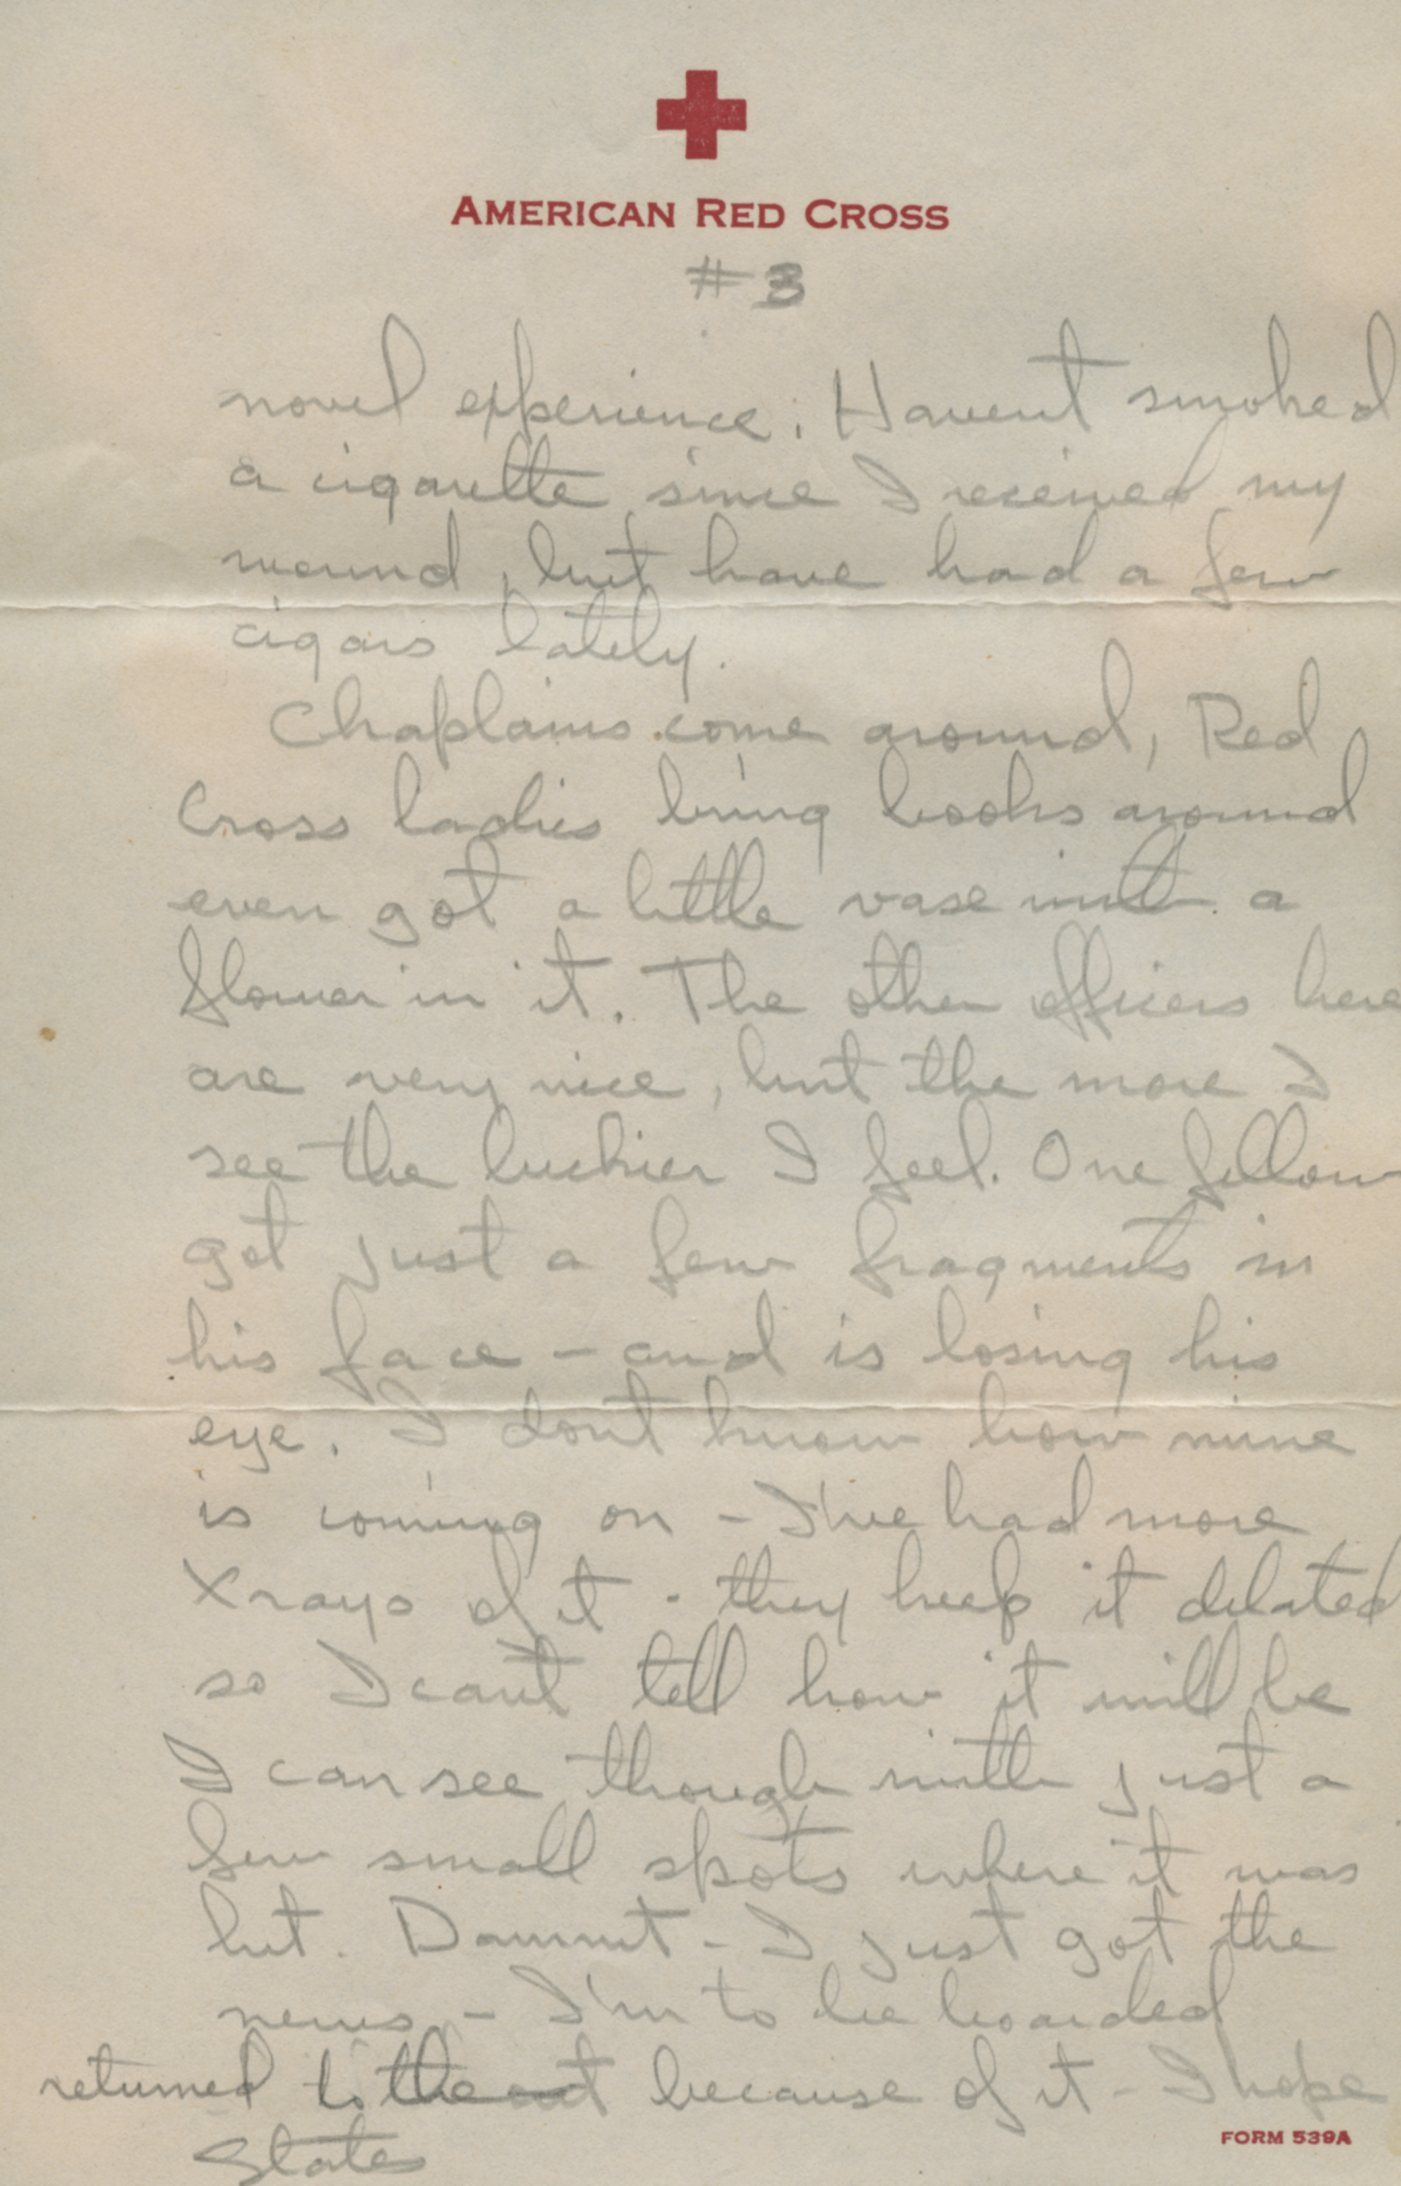 AMERICAN RED CROSS
#3
novel experience. Havent smoked
a cigarette since I received my
wound, but have had a few
cigars lately.
Chaplains come around, Red
Cross ladies bring books around
even got a little vase with a
flower in it. The other officers here
are very nice, but the more I
see the luckier I feel. One fellow
got just a few fragments in
his face - and is losing his
eye. I dont know how mine
is coming on - I've had more
Xrays of it - they keep it dilated
so I cant tell how it will be
I can see though with just a
few small spots where it was
hit. Damnit - I just got the
news - I'm to be boarded
returned to the because of it - I hope
States
FORM 539A